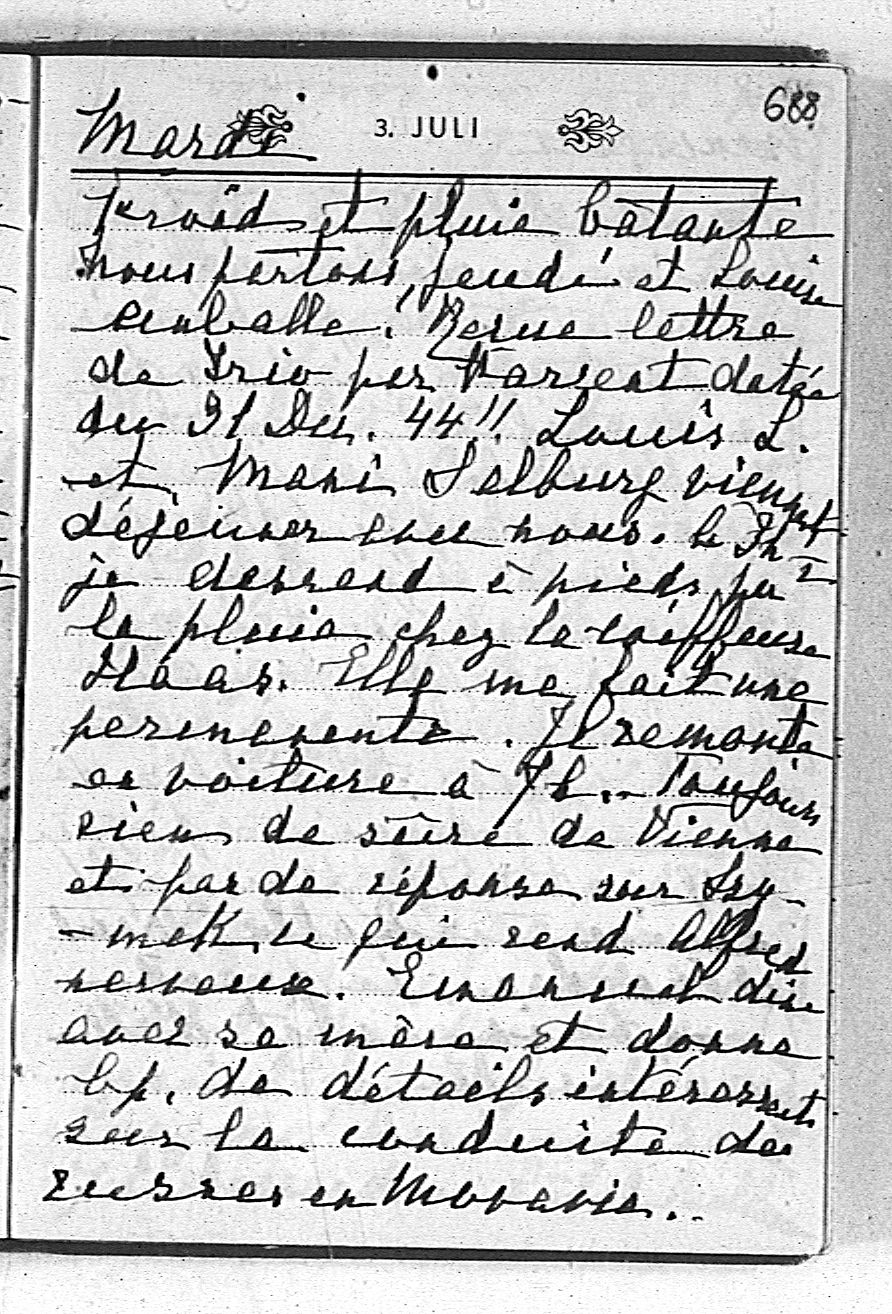 688
3. JULI
Mardi
Froid et pluie batante
nous partons jeudi et Louise
emballe! Reçue lettre
de Trio per Varient datée
du 31 Dec. 44!! Louis L.
et Mani Salburg viennent
déjeuner avec nous. à 3h
je descend à pieds par
la pluie chez la coiffeuse
Haas. Elle me fait une
permenente. Je remonte
en voiture à 7h.. Toujours
rien de sûre de Vienne
et pas de réponse sur
-mek ce qui rend Alfred
nerveux. Emanuel dîne
avec sa mère et donne
bp. de détails intéressants
sur la conduite des
russes en Moravie..